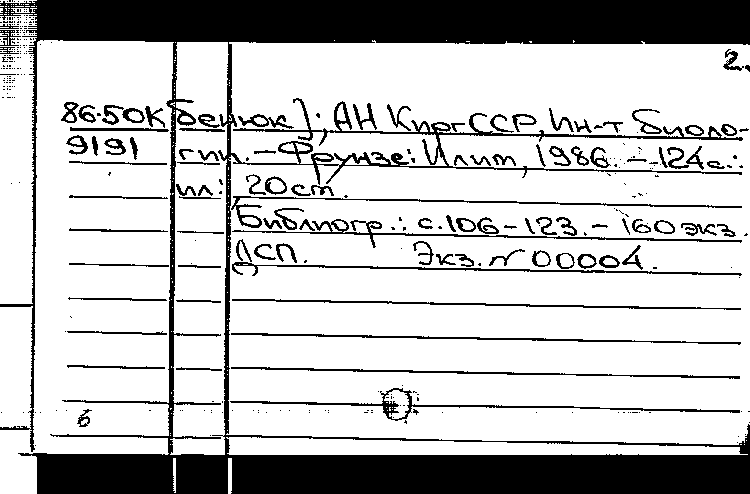 2.
86-50К бенюк]; АН КиргССР, Ин-т биоло-
9191 гии. – Фрунзе: Илим, 1986. – 124 с.:
ил.; 20 см.
Библиогр.: с. 106-123. – 160 экз.
ДСП. Экз. № 00004.
б